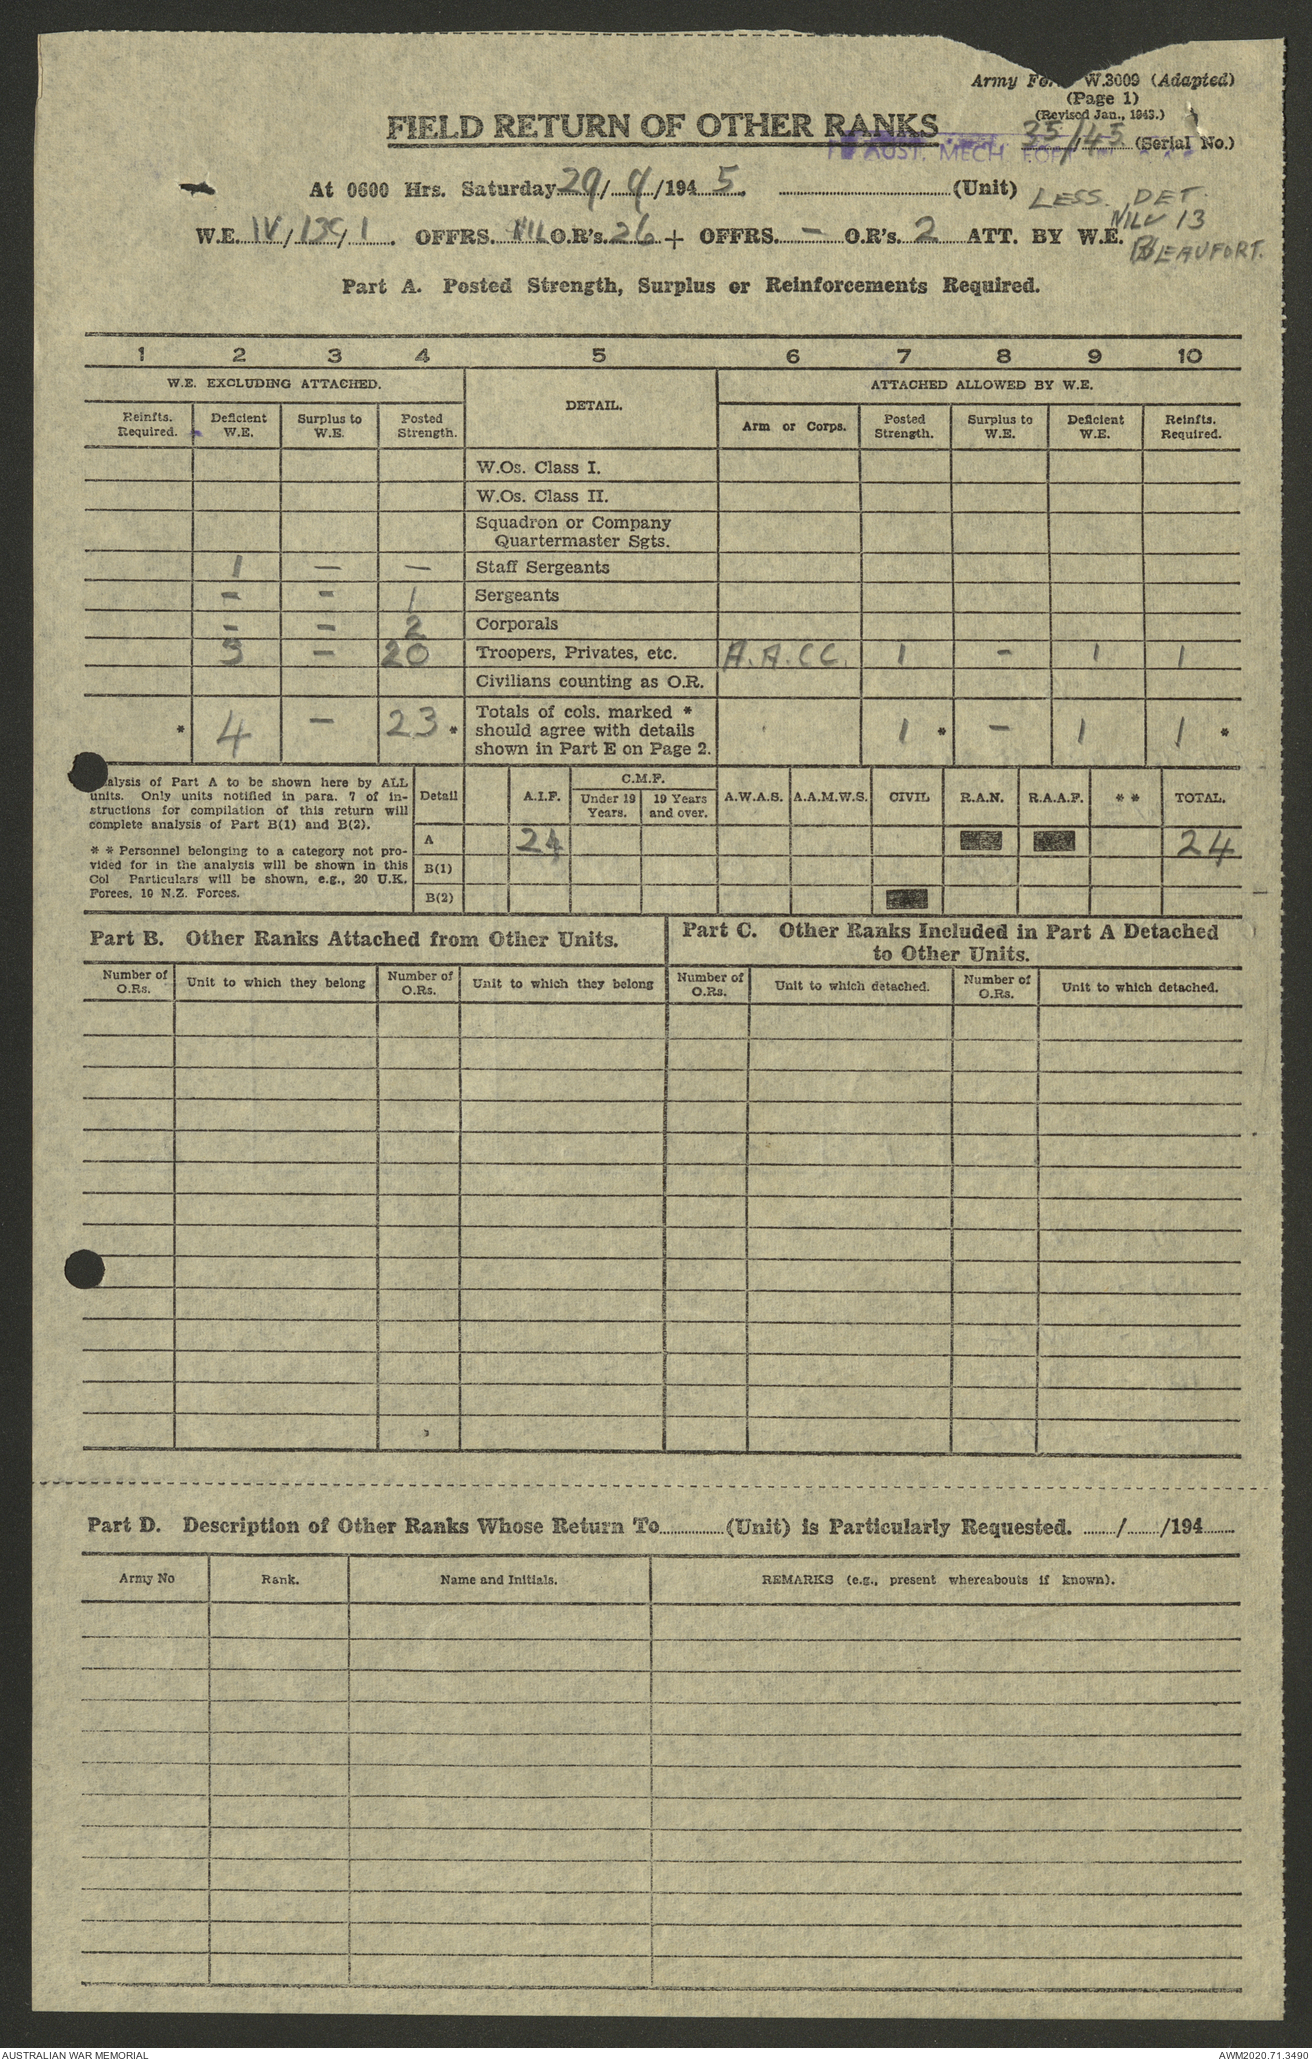 Army For W.3009 (Adapted)
(Page 1)
(Revised Jan., 1943.)
FIELD RETURN OF OTHER RANKS
35/45 (Serial No.)
AUST. MECH. EQPT.
At 0600 Hrs. Saturday 29/9/1945. (Unit) LESS. DET.
13
W.E. IV/13c/1. OFFRS. NIL O.R's. 26 + OFFRS. – O.R's. 2 ATT. BY W.E.
BEAUFORT.
Part A. Posted Strength, Surplus or Reinforcements Required.
1 2 3 4 5 6 7 8 9 10
W.E. EXCLUDING ATTACHED. DETAIL. ATTACHED ALLOWED BY W.E.
Reinfts. Required. Deficient W.E. Surplus to W.E. Posted Strength. Arm or Corps. Posted Strength. Surplus to W.E. Deficient W.E. Reinfts. Required.
W.Os. Class I.
W.Os. Class II.
Squadron or Company
Quartermaster Sgts.
1 – – Staff Sergeants
– – 1 Sergeants
– – 2 Corporals
3 – 20 Troopers, Privates, etc. A.A.CC. 1 – 1 1
Civilians counting as O.R.
* 4 – 23 * Totals of cols. marked * should agree with details shown in Part E on Page 2. 1 * – 1 1 *
alysis of Part A to be shown here by ALL
units. Only units notified in para. 7 of in-
structions for compilation of this return will
complete analysis of Part B(1) and B(2).
* * Personnel belonging to a category not pro-
vided for in the analysis will be shown in this
Col Particulars will be shown, e.g., 20 U.K.
Forces, 10 N.Z. Forces.
Detail A.I.F. C.M.F. Under 19 Years. 19 Years and over. A.W.A.S. A.A.M.W.S. CIVIL R.A.N. R.A.A.F. * * TOTAL.
A 24 24
B(1)
B(2)
Part B. Other Ranks Attached from Other Units.
Number of O.Rs. Unit to which they belong Number of O.Rs. Unit to which they belong
Part C. Other Ranks Included in Part A Detached
to Other Units.
Number of O.Rs. Unit to which detached. Number of O.Rs. Unit to which detached.
Part D. Description of Other Ranks Whose Return To (Unit) is Particularly Requested. / /194
Army No Rank. Name and Initials. REMARKS (e.g., present whereabouts if known).
AUSTRALIAN WAR MEMORIAL
AWM2020.71.3490